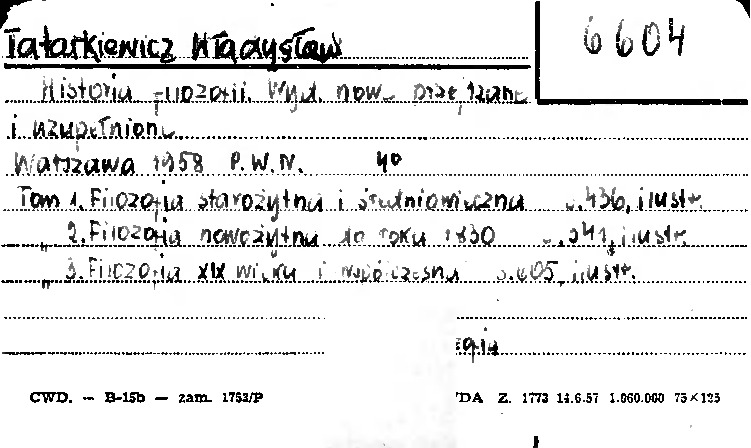 Tatarkiewicz Władysław
6604
Historia filozofii. Wyd. nowe przejrzane
i uzupełnione
Warszawa 1958 P.W.N. 4°
Tom 1. Filozofia starożytna i średniowieczna s. 436, ilustr.
„ 2. Filozofia nowożytna do roku 1830 s. 341, ilustr.
„ 3. Filozofia XIX wieku i współczesna s. 605, ilustr.
CWD. — B-15b — zam. 1753/P
DA Z. 1773 14.6.57 1.060.000 75×125